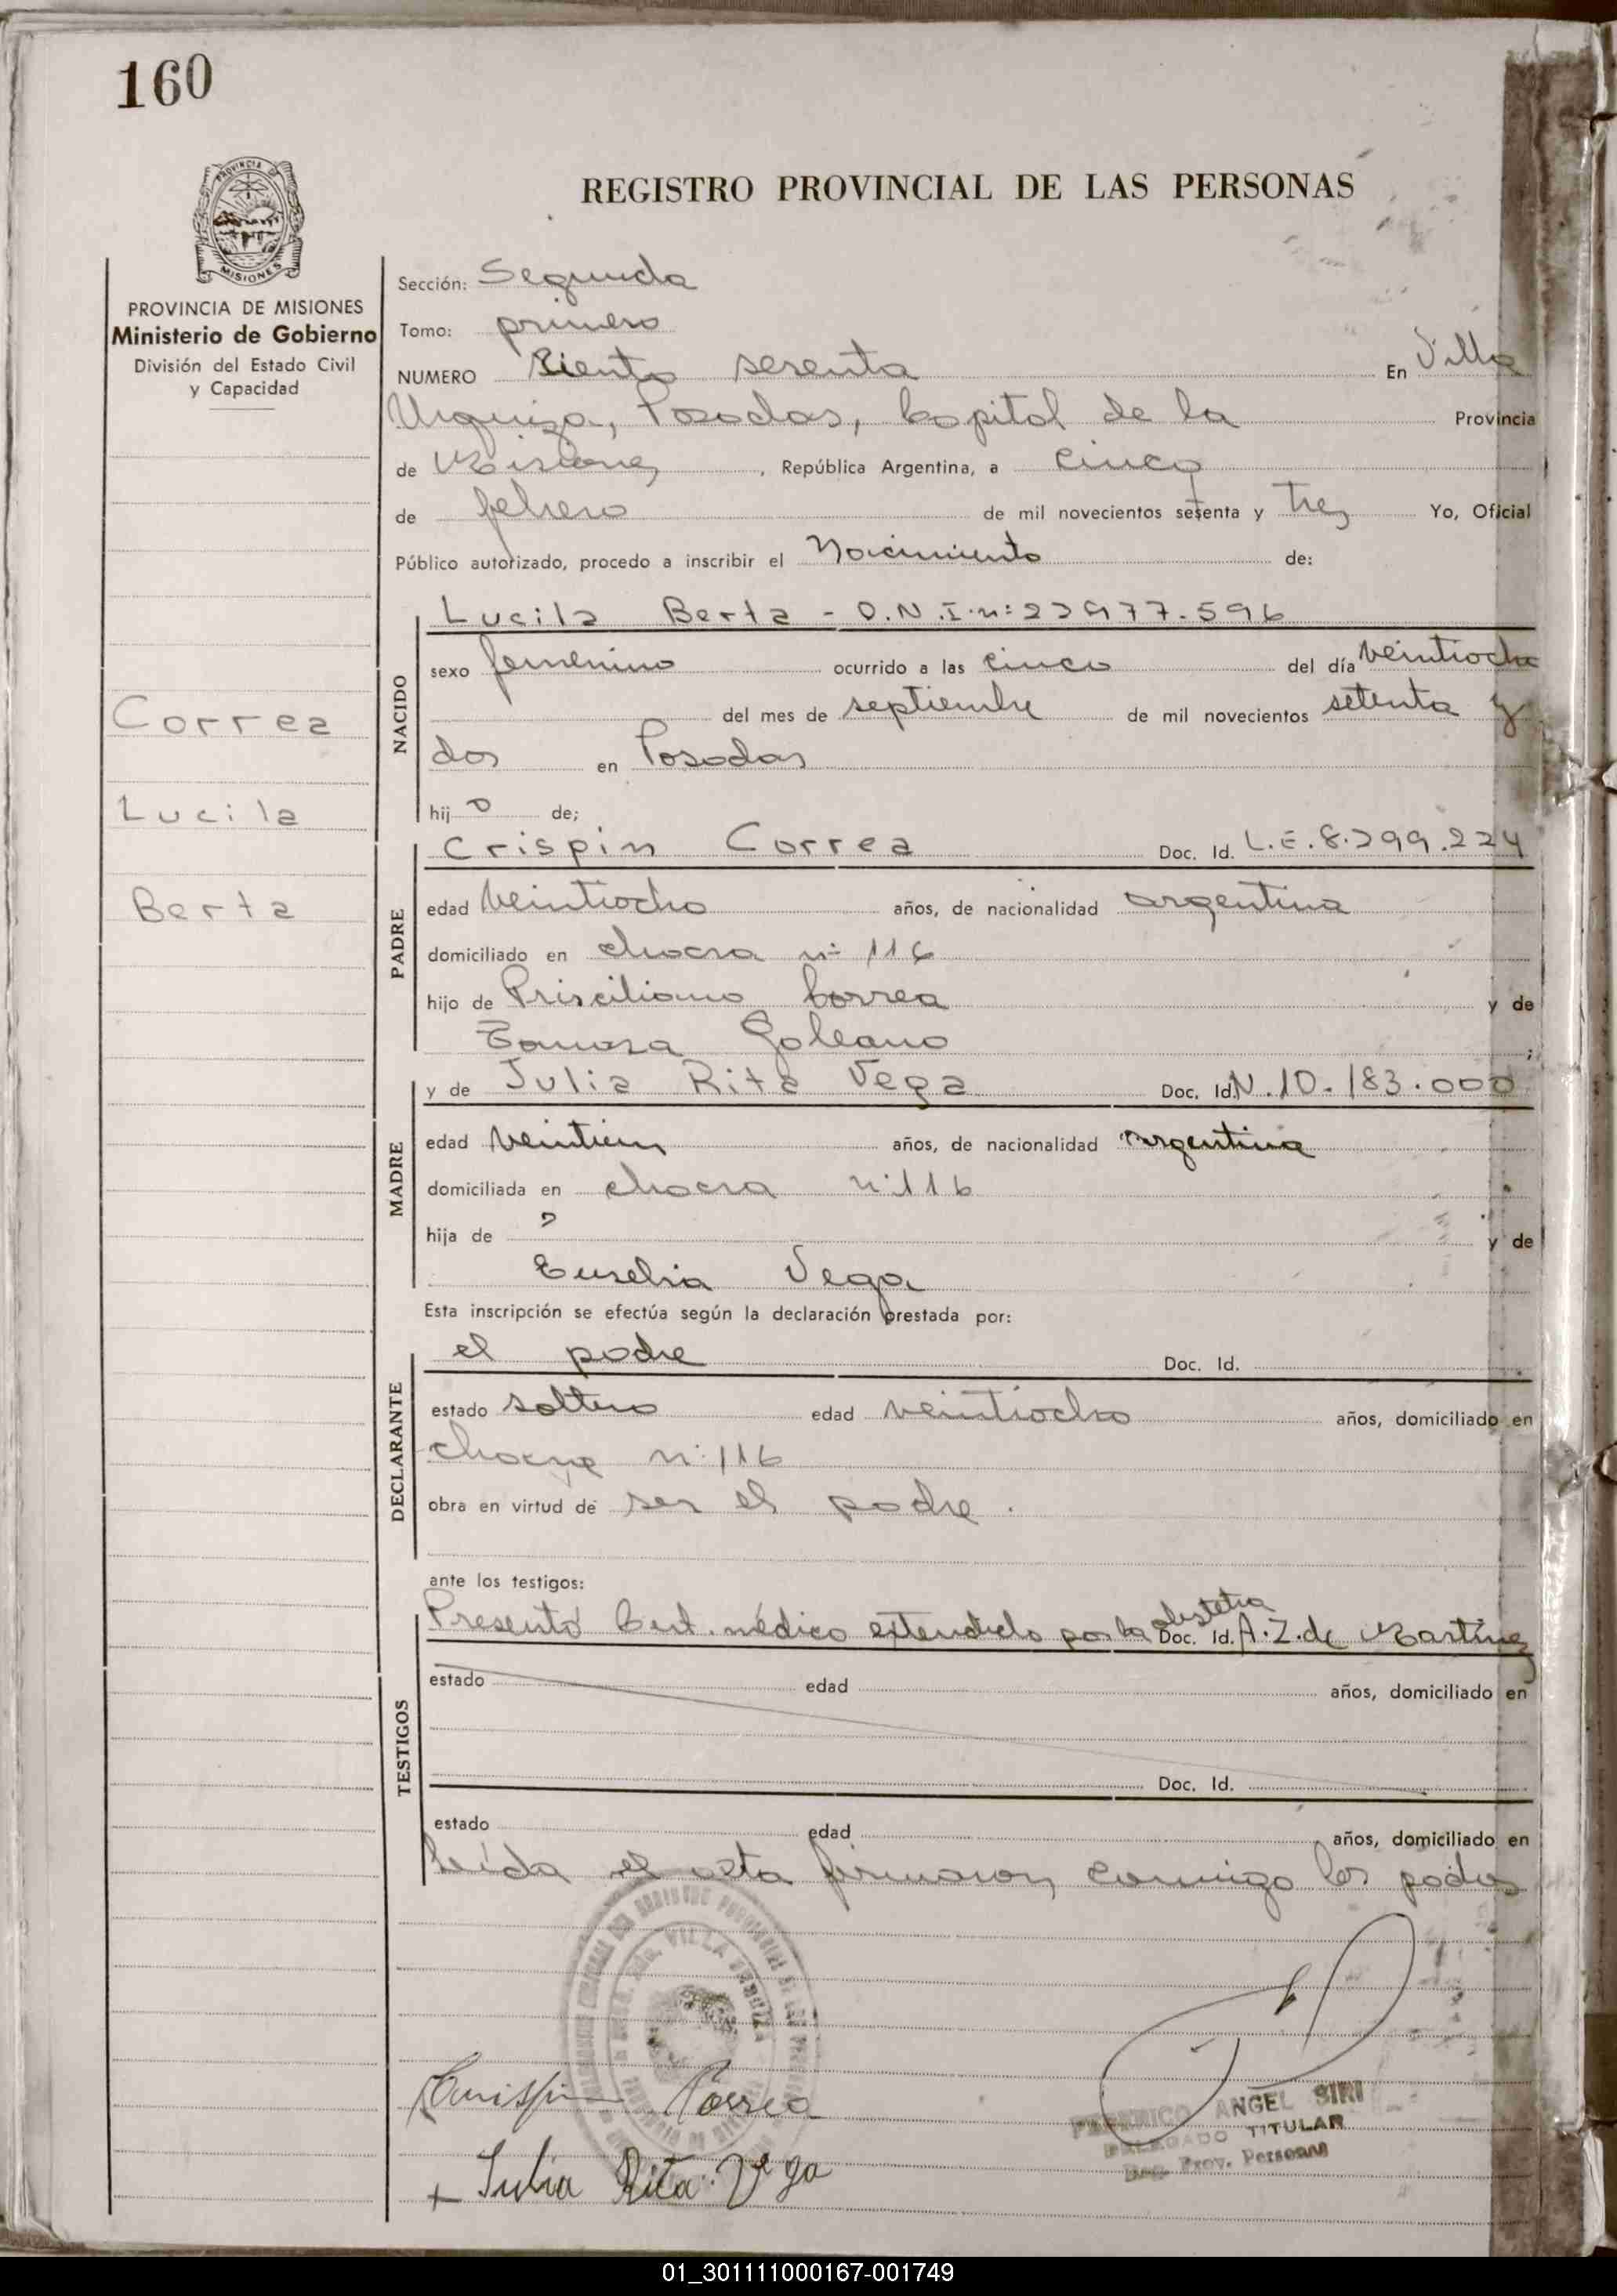 160
PROVINCIA DE
MISIONES
REGISTRO PROVINCIAL DE LAS PERSONAS
PROVINCIA DE MISIONES
Ministerio de Gobierno
División del Estado Civil
y Capacidad
Correa
Lucila
Berta
Sección: Segunda
Tomo: primero
NUMERO Ciento sesenta En Villa
Urquiza, Posadas, Capital de la Provincia
de Misiones, República Argentina, a cinco
de febrero de mil novecientos setenta y tres Yo, Oficial
Público autorizado, procedo a inscribir el Nacimiento de:
NACIDO
Lucila Berta - D.N.I.n: 22977.596
sexo femenino ocurrido a las cinco del día veintiocho
del mes de septiembre de mil novecientos setenta y
dos en Posadas
hij a de;
PADRE
Crispin Correa Doc. Id. L.E. 8.299.224
edad veintiocho años, de nacionalidad argentina
domiciliado en chacra nº 116
hijo de Prisciliano Correa y de
Tomasa Galeano ;
MADRE
y de Julia Rita Vega Doc. Id. N. 10.183.000
edad veintiun años, de nacionalidad argentina
domiciliada en chacra n: 116
hija de y de
Eusebia Vega
Esta inscripción se efectúa según la declaración prestada por:
DECLARANTE
el padre Doc. Id.
estado soltero edad veintiocho años, domiciliado en
chacra n: 116
obra en virtud de ser el padre.
ante los testigos:
TESTIGOS
Presentó Cert. médico extendido por la obstetra Doc. Id. A. Z. de Martinez
estado edad años, domiciliado en
Doc. Id.
estado edad años, domiciliado en
leída el acta firmaron conmigo los padres
VILLA URQUIZA
Crispin Correa
Julia Rita Vega
FEDERICO ANGEL SIRI
DELEGADO TITULAR
Reg. Prov. Personas
01_301111000167-001749